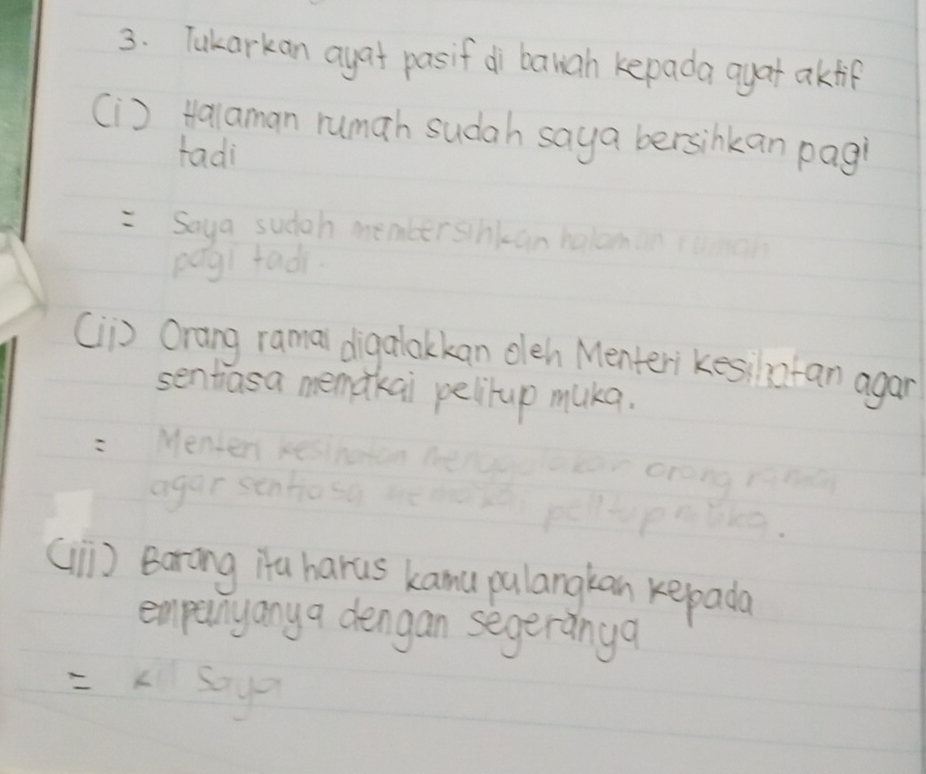 3. Tukarkan ayat pasif di bawah kepada ayat aktif
(i) Halaman rumah sudah saya bersihkan pagi
tadi
= Saya sudah membersihkan halaman rumah
pagi tadi.
(ii) Orang ramai digalakkan oleh Menteri Kesihatan agar
sentiasa memakai pelitup muka.
= Menteri kesihatan menggalakan orang ramai
agar sentiasa memakai pelitup muka.
(iii) Barang itu harus kamu pulangkan kepada
empunyanya dengan segeranya
= Saya